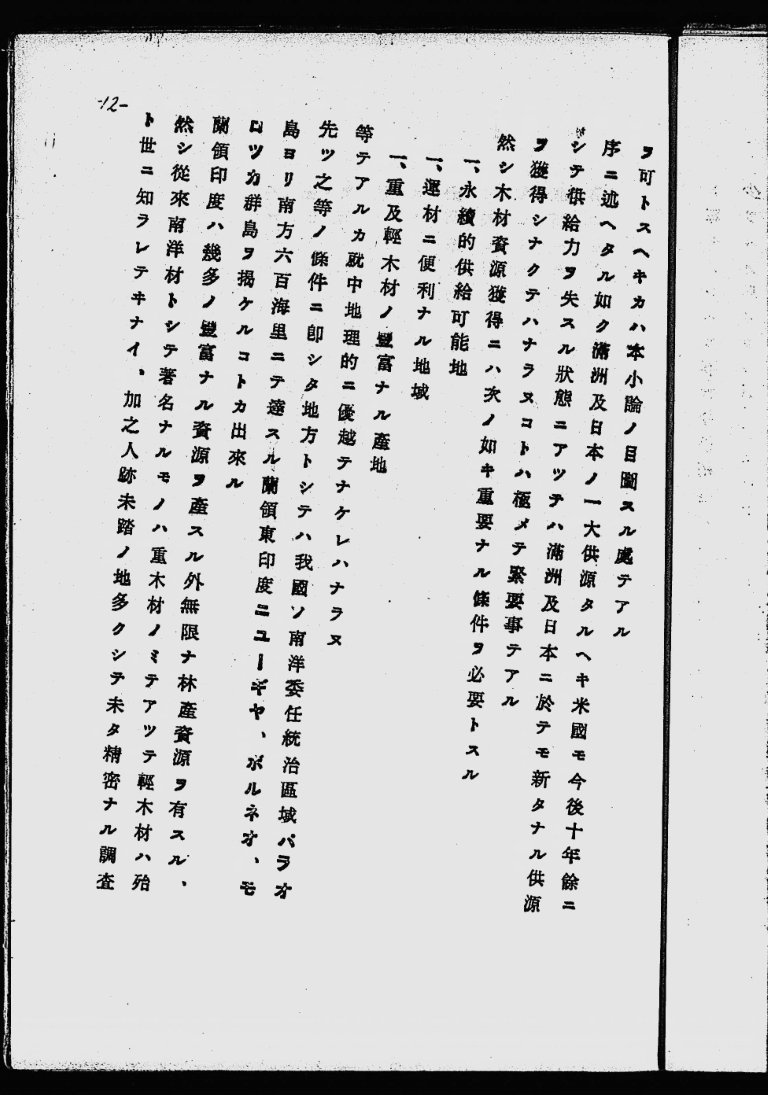 ヲ可トスヘキカハ本小論ノ目圖スル處テアル
序ニ述ヘタル如ク滿洲及日本ノ一大供源タルヘキ米國モ今後十年餘ニ
シテ供給力ヲ失スル狀態ニアツテハ滿洲及日本ニ於テモ新タナル供源
ヲ獲得シナクテハナラヌコトハ極メテ緊要事テアル
然シ木材資源獲得ニハ次ノ如キ重要ナル條件ヲ必要トスル
一、永續的供給可能地
一、運材ニ便利ナル地域
一、重及輕木材ノ豐富ナル產地
等テアルカ就中地理的ニ優越テナケレハナラヌ
先ツ之等ノ條件ニ卽シタ地方トシテハ我國ソノ南洋委任統治區域パラオ
島ヨリ南方六百海里ニテ達スル蘭領東印度ニユーギヤ、ボルネオ、モ
ロツカ群島ヲ揭ケルコトカ出來ル
蘭領印度ハ幾多ノ豐富ナル資源ヲ產スル外無限ナ林產資源ヲ有スル、
然シ從來南洋材トシテ著名ナルモノハ重木材ノミテアツテ輕木材ハ殆
ト世ニ知ラレテヰナイ、加之人跡未踏ノ地多クシテ未タ精密ナル調査
-12-